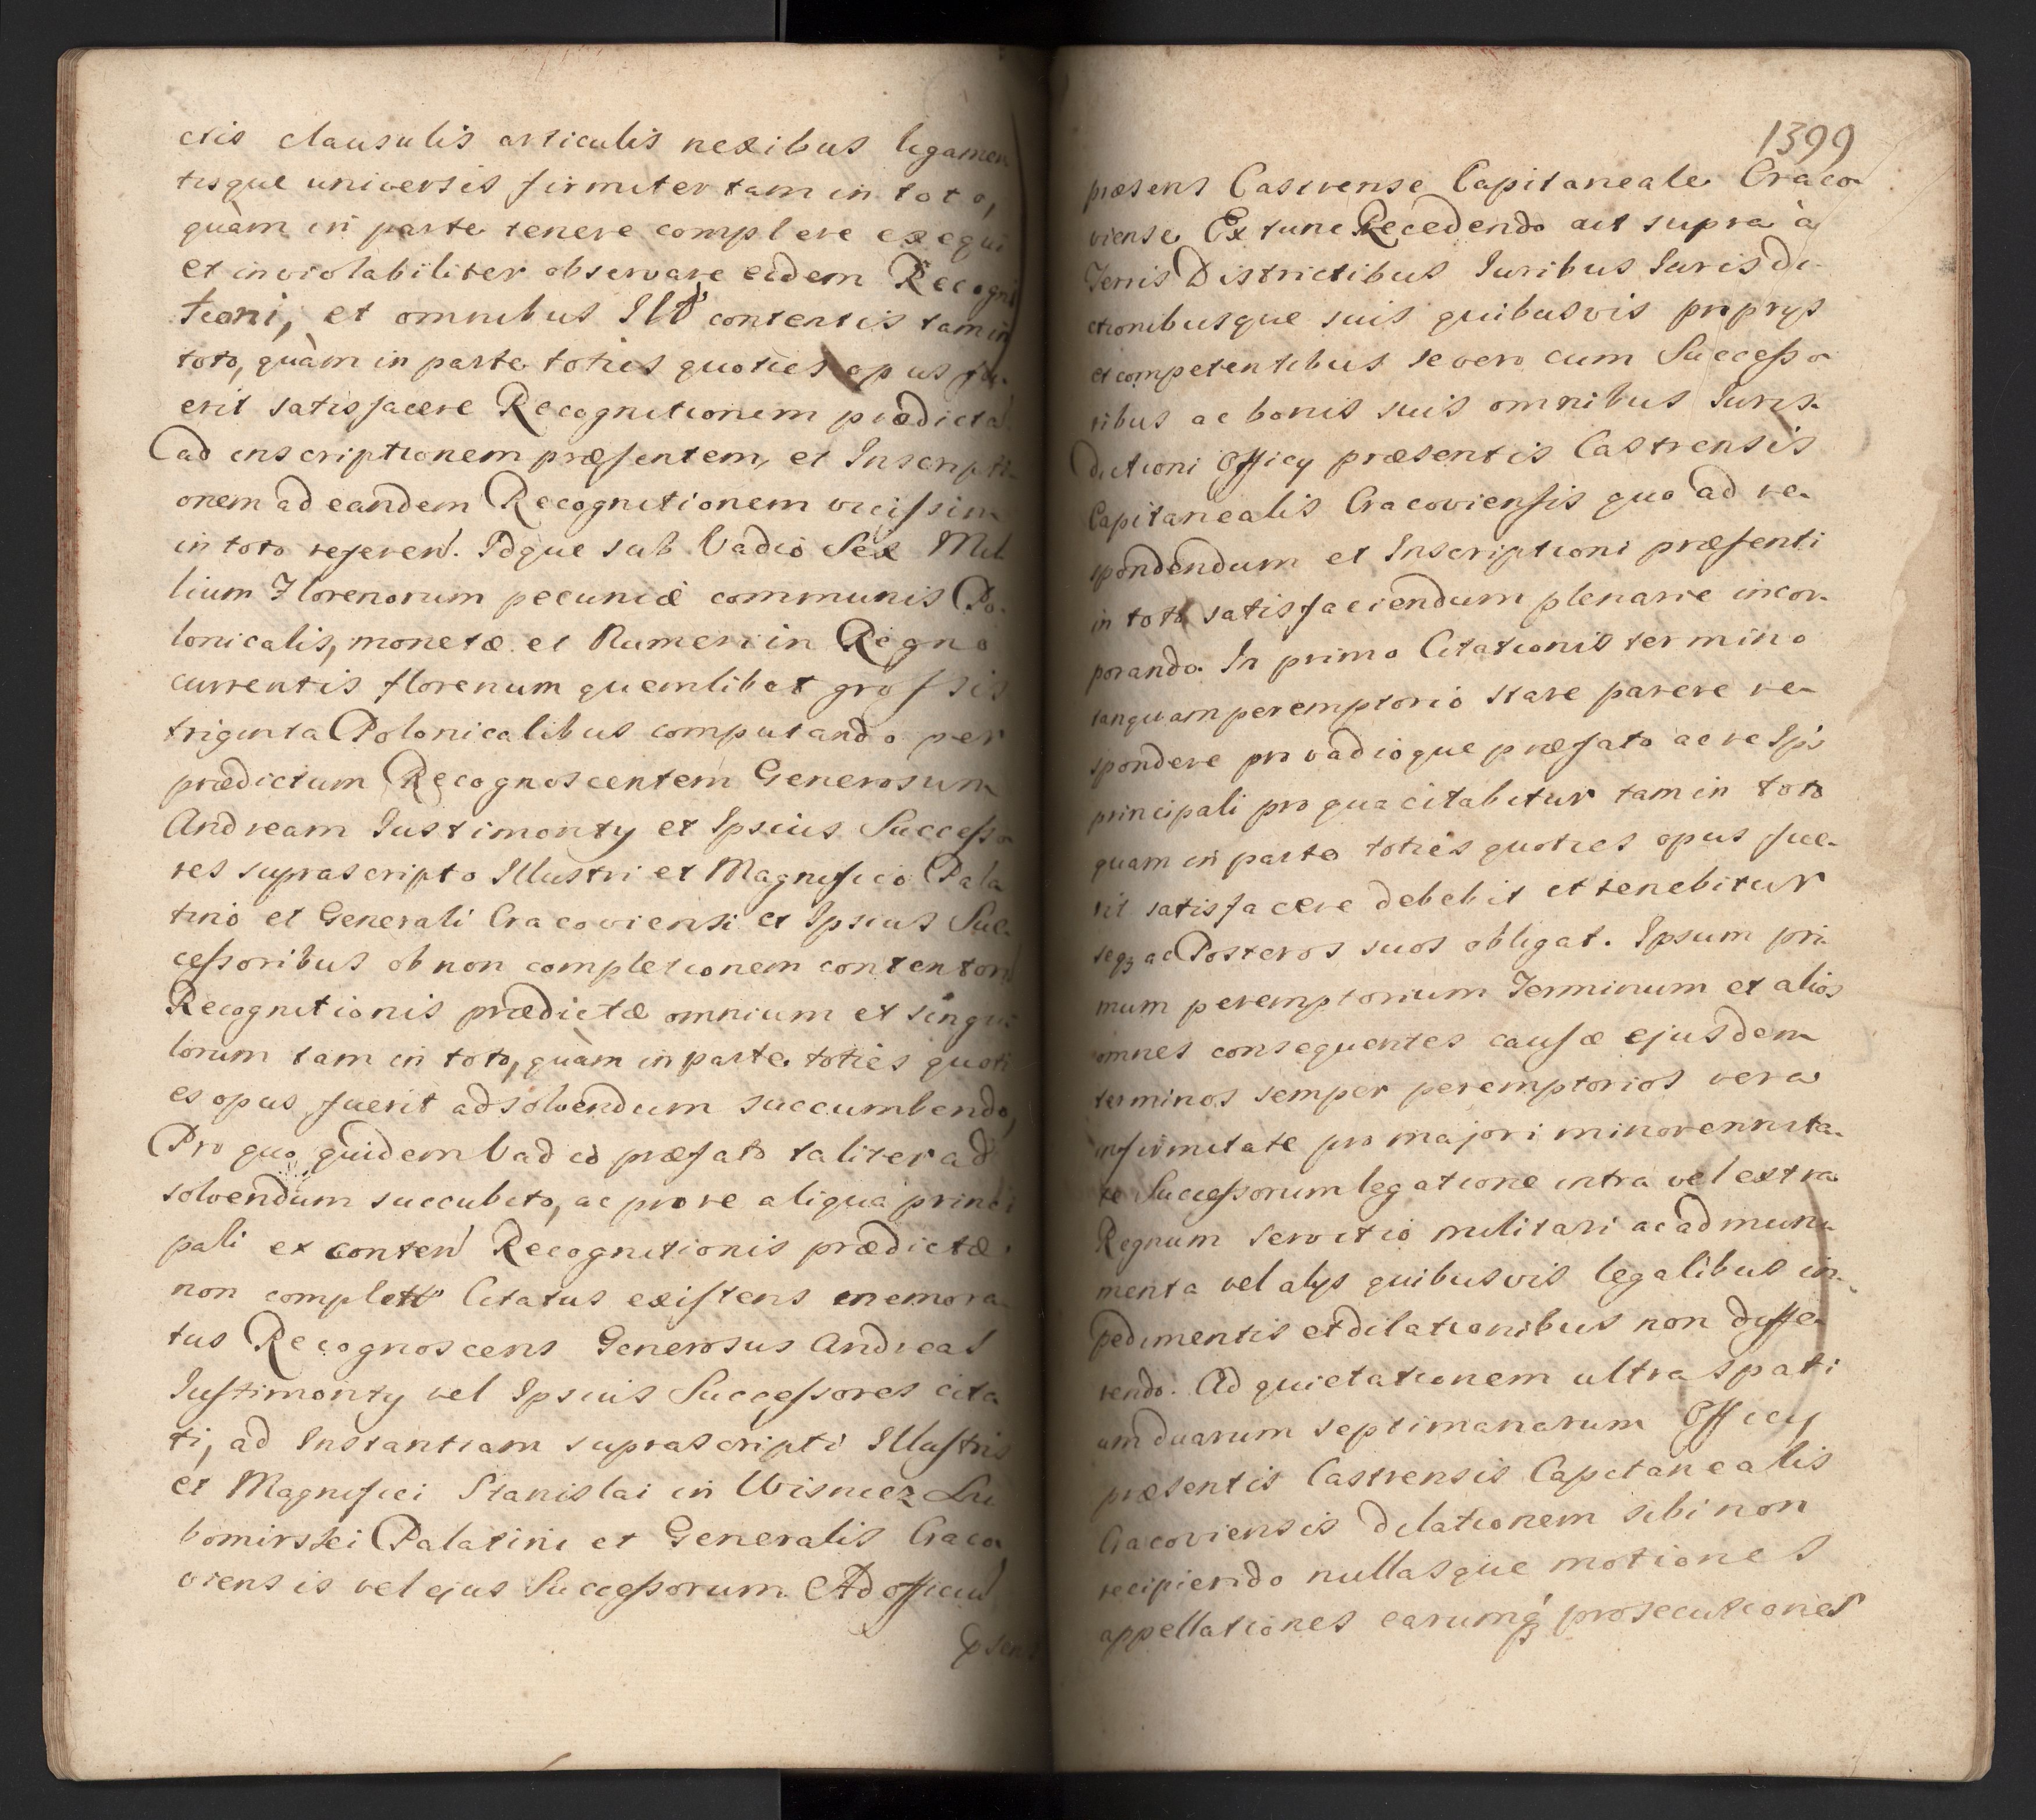 ctis clausulis articulis nexibus ligamen
tisque universis firmiter tam in toto,
quàm in parte tenere complere exequi
et inviolabiliter observare eidem Recogni
tioni, et omnibus contentis tam in
toto, quàm in parte toties quoties opus fu-
erit satisfacere Recognitionem prædicta
ad inscriptionem præsentem, et Inscripti-
onem ad eandem Recognitionem vicissim
in toto referen. Idque sub Vadio Sex Mil
lium Florenorum pecuniæ communis Po-
lonicalis, monetæ et Numeri in Regno
currentis florenum quemlibet grossis
triginta Polonicalibus computando per
prædictum Recognoscentem Generosum
Andream Justimonty et Ipsius Successo
res suprascripto Illustri et Magnifico Pala
tino et Generali Cracoviensi et Ipsius Suc-
cessoribus ob non completionem contentor
Recognitionis prædictæ omnium et singu
lorum tam in toto, quàm in parte toties quoti
es opus fuerit adsolvendum succumbendo,
Pro quo quidem Vadio præfato taliter ad
solvendum succubito, ac pro re aliqua princi
pali ex conten Recognitionis prædictæ
non complett Citatus existens enemora
tus Recognoscens Generosus Andreas
Justimonty vel Ipsius Successores cita
ti, ad Instantiam suprascripti Illustris
et Magnifici Stanislai in Wisnicz Lu
bomirski Palatini et Generalis Craco
viensis vel ejus Successorum Ad officiu
psens
1399
præsens Castrense Capitaneale Craco-
viense Ex tunc Recedendo aut supra à
Terris Districtibus Juribus Jurisdi-
ctionibusque suis quibusvis proprys
et competentibus se vero cum Successo
ribus ac bonis suis omnibus Juris-
dictioni Officy præsentis Castrensis
Capitanealis Cracoviensis quo ad re-
spondendum et Inscriptioni præsenti
in toto satisfaciendum plenarie incor-
porando. In primo Citationis termino
tanquam peremptorio stare parere re-
spondere pro vadioque præfato ac re Ipsa
principali pro qua citabitur tam in toto
quam in parte toties quoties opus fue-
rit satisfacere debebit et tenebitur
seqz ac Posteros suos obligat. Ipsum pri-
mum peremptorium Terminum et alios
omnes consequentes causæ ejusdem
terminos semper peremptorios vera
infirmitate pro majori minorennita-
te Successorum legatione intra vel extra
Regnum servitio militari ac ad muni
menta vel alys quibusvis legalibus im-
pedimentis et dilationibus non diffe-
rendo. Ad quietationem ultra spati
um duarum septimanarum Officy
præsentis Castrensis Capitanealis
Cracoviensis dilationem sibi non
recipiendo nullasque motiones
appellationes earumqz prosecutiones